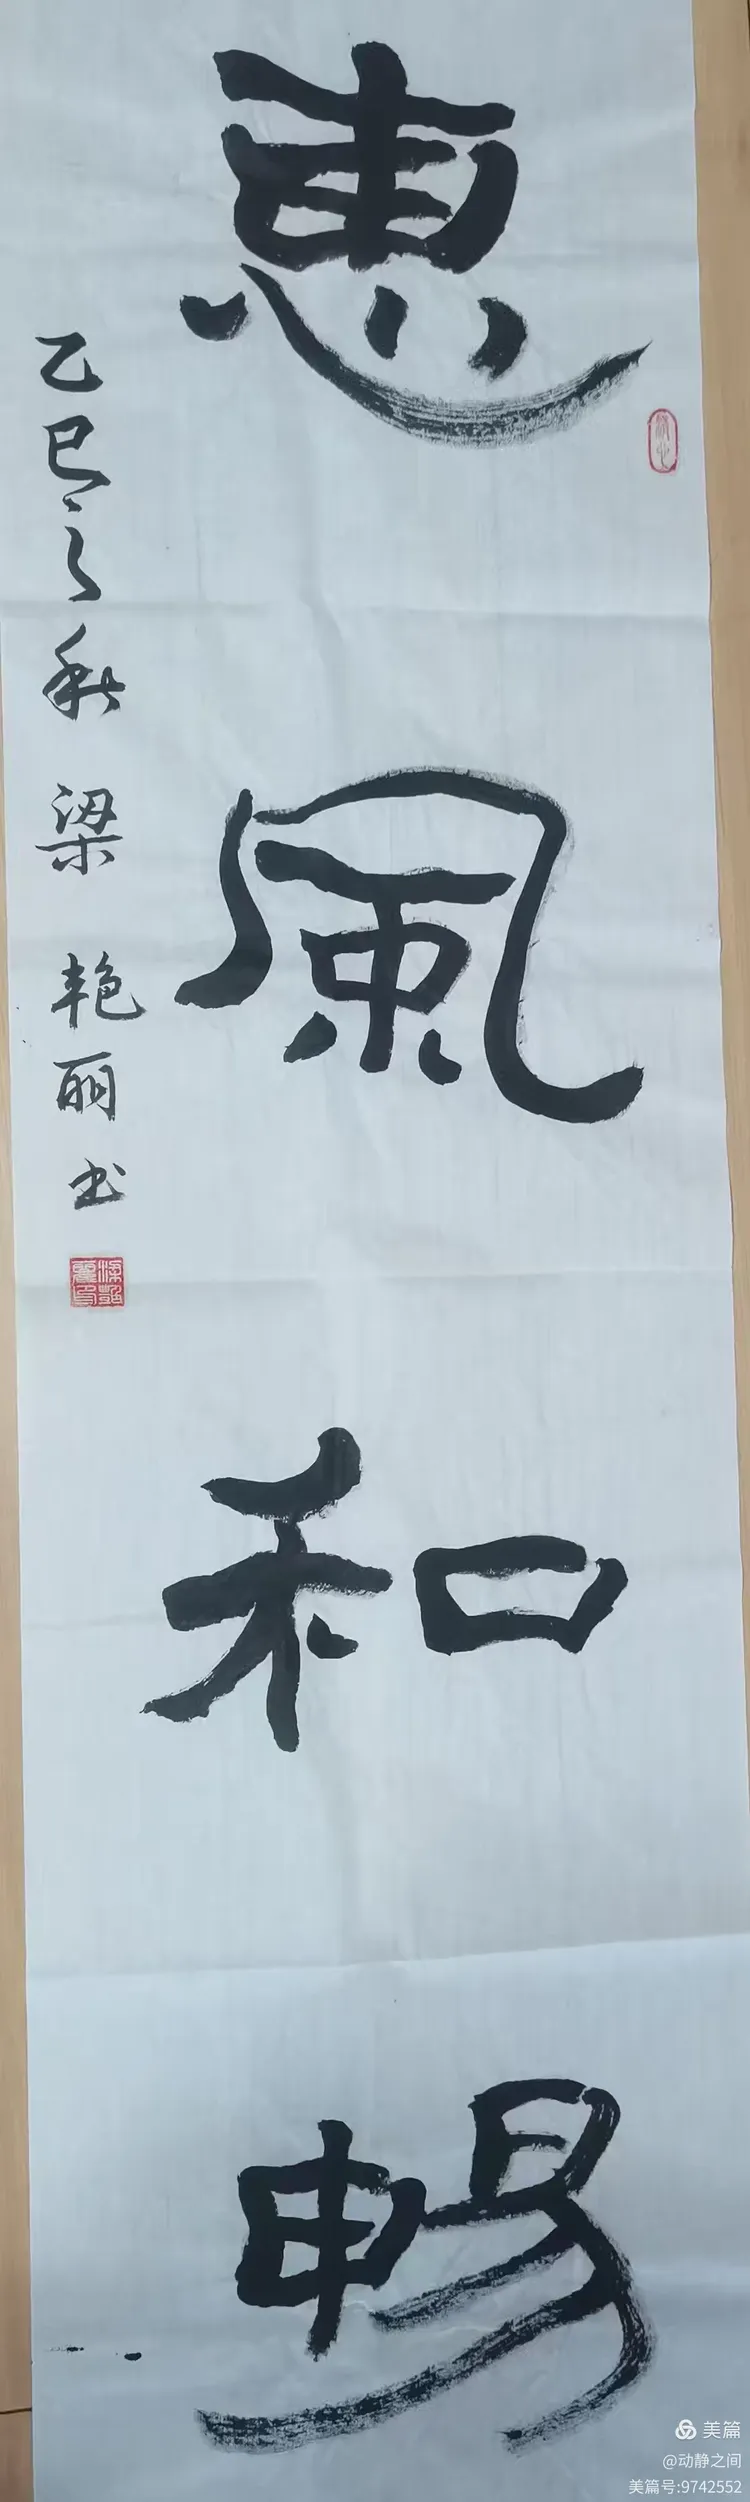 惠風和畅
乙巳之秋 梁艳丽书
美篇
@动静之间
美篇号:9742552